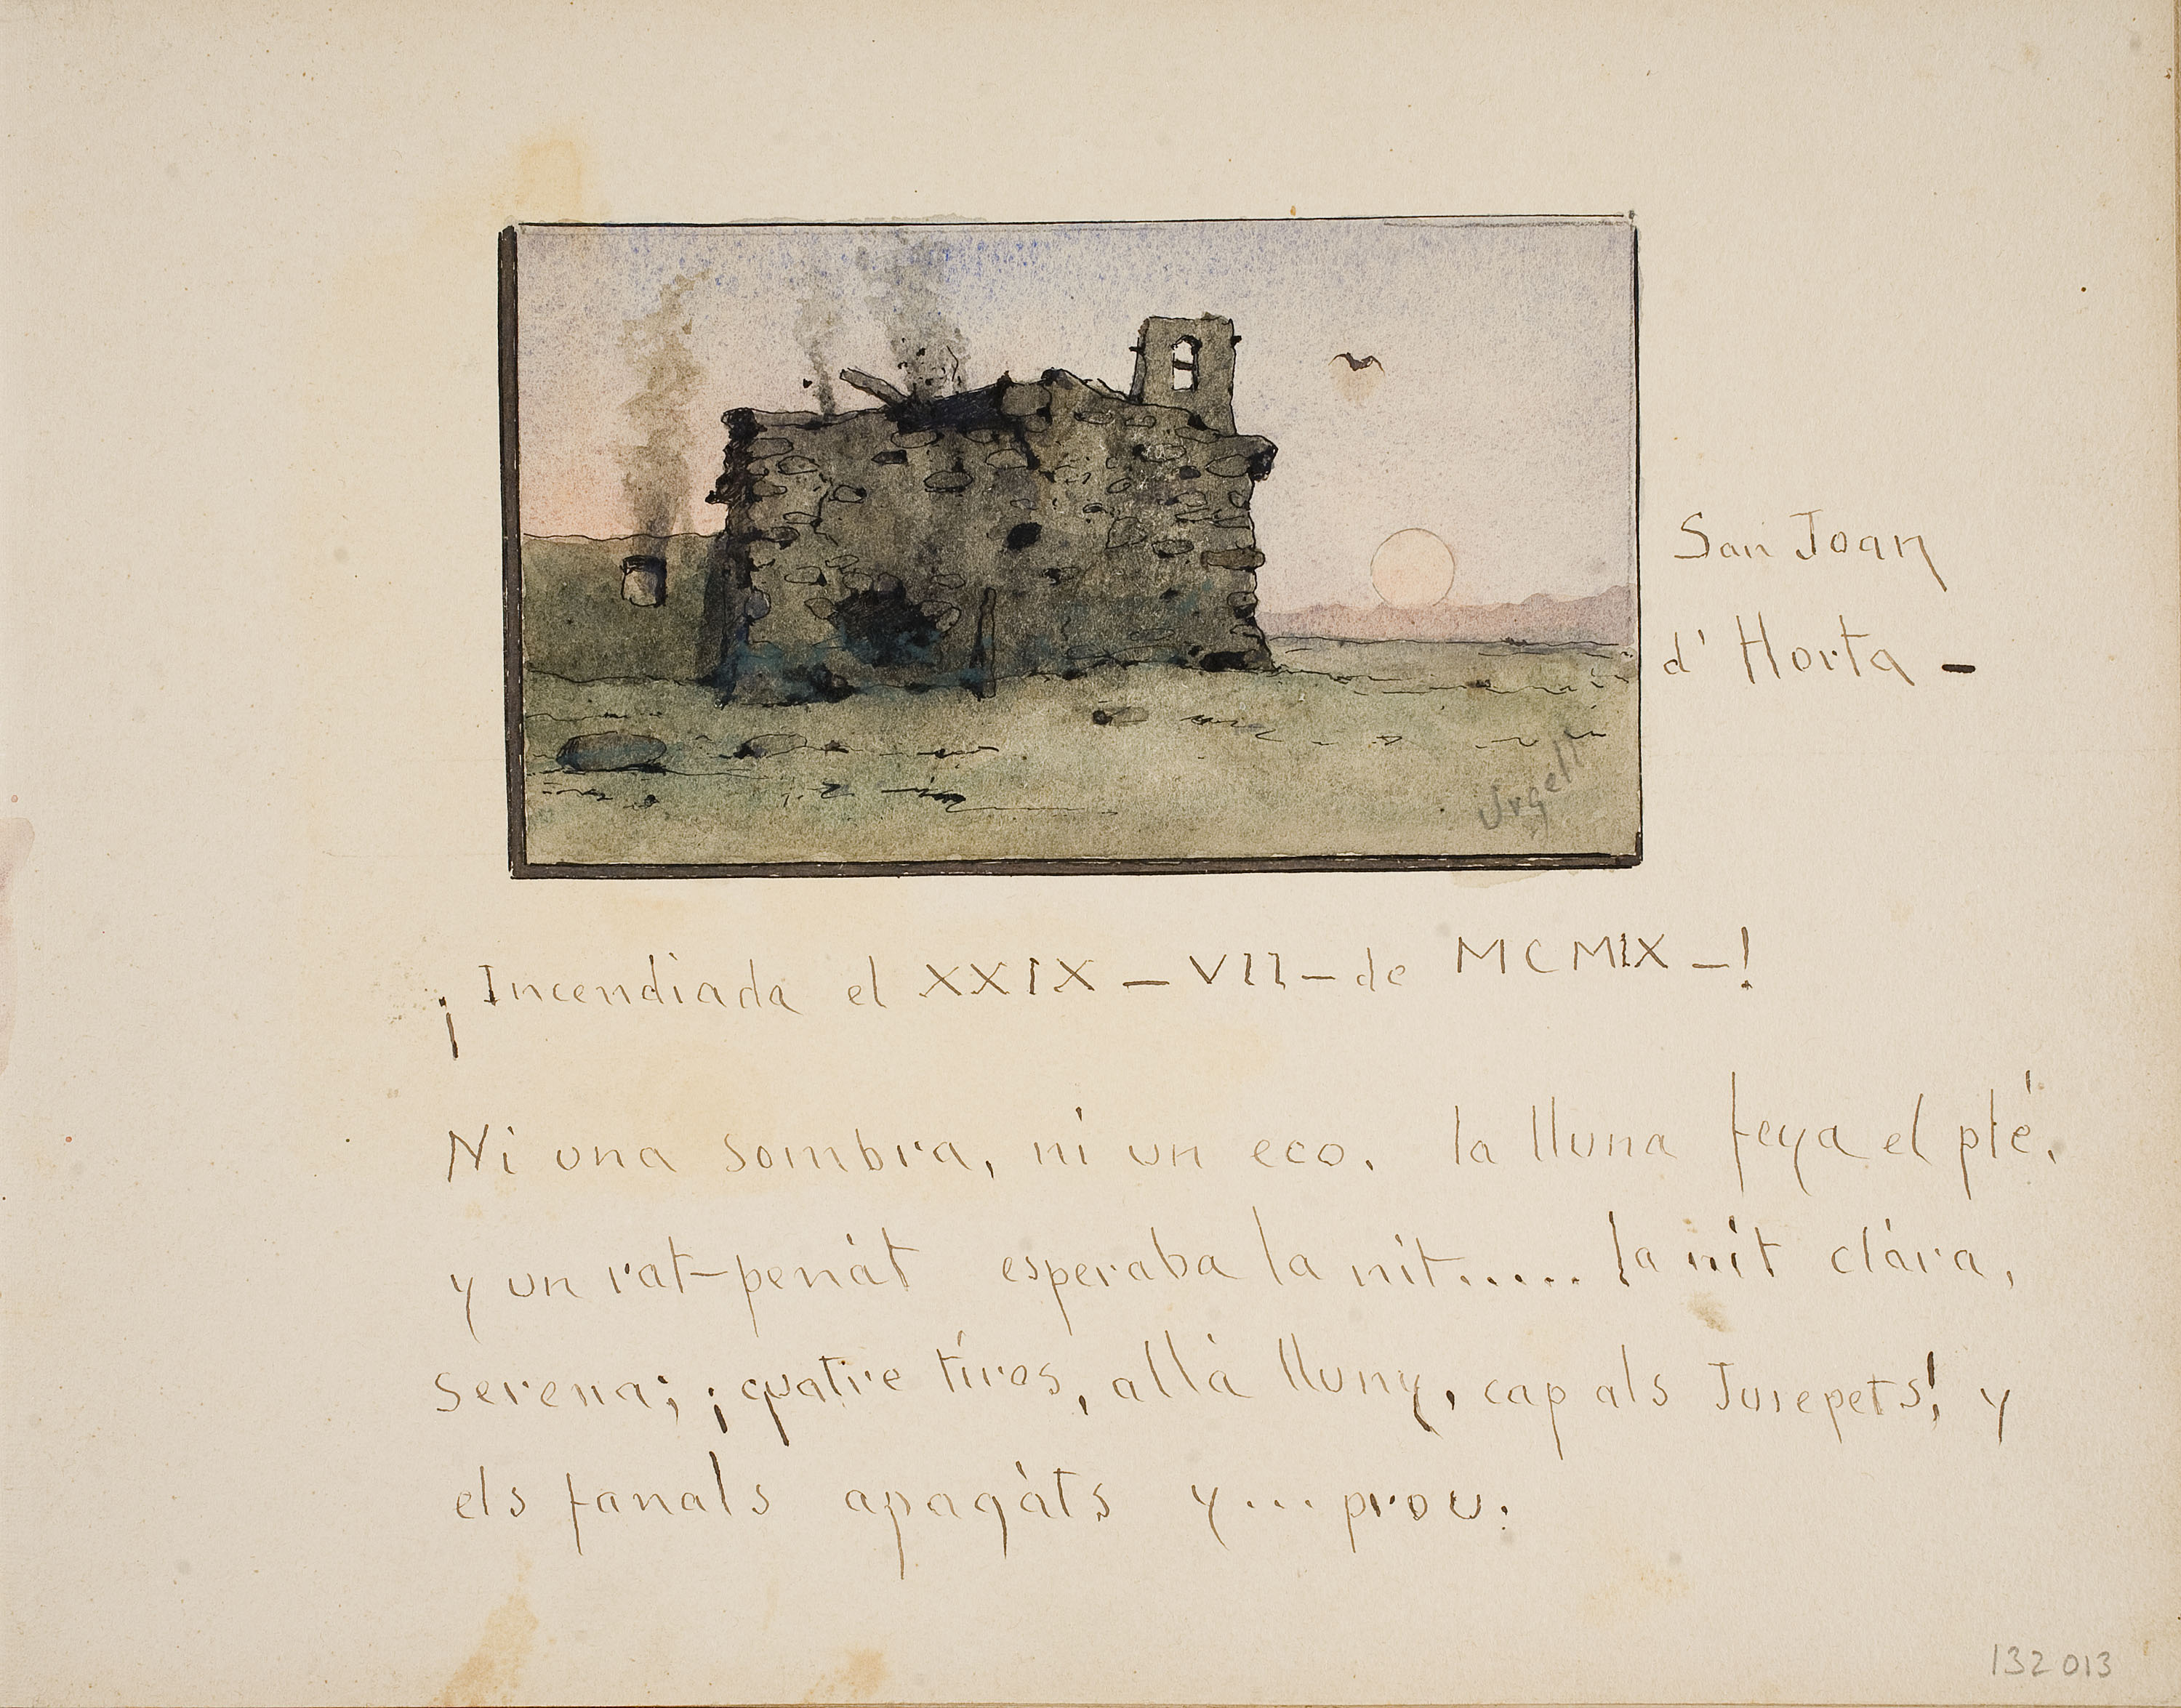 Urgell
San Joan
d' Horta -
¡Incendiada el XXIX - VII - de MCMIX -!
Ni una sombra, ni un eco. la lluna feya el plé,
y un rat-penát esperaba la nit..... la nit clára,
serena; ¡quatre tíros, allá lluny, cap als Jusepets! y
els fanals apagáts y... prou.
132013